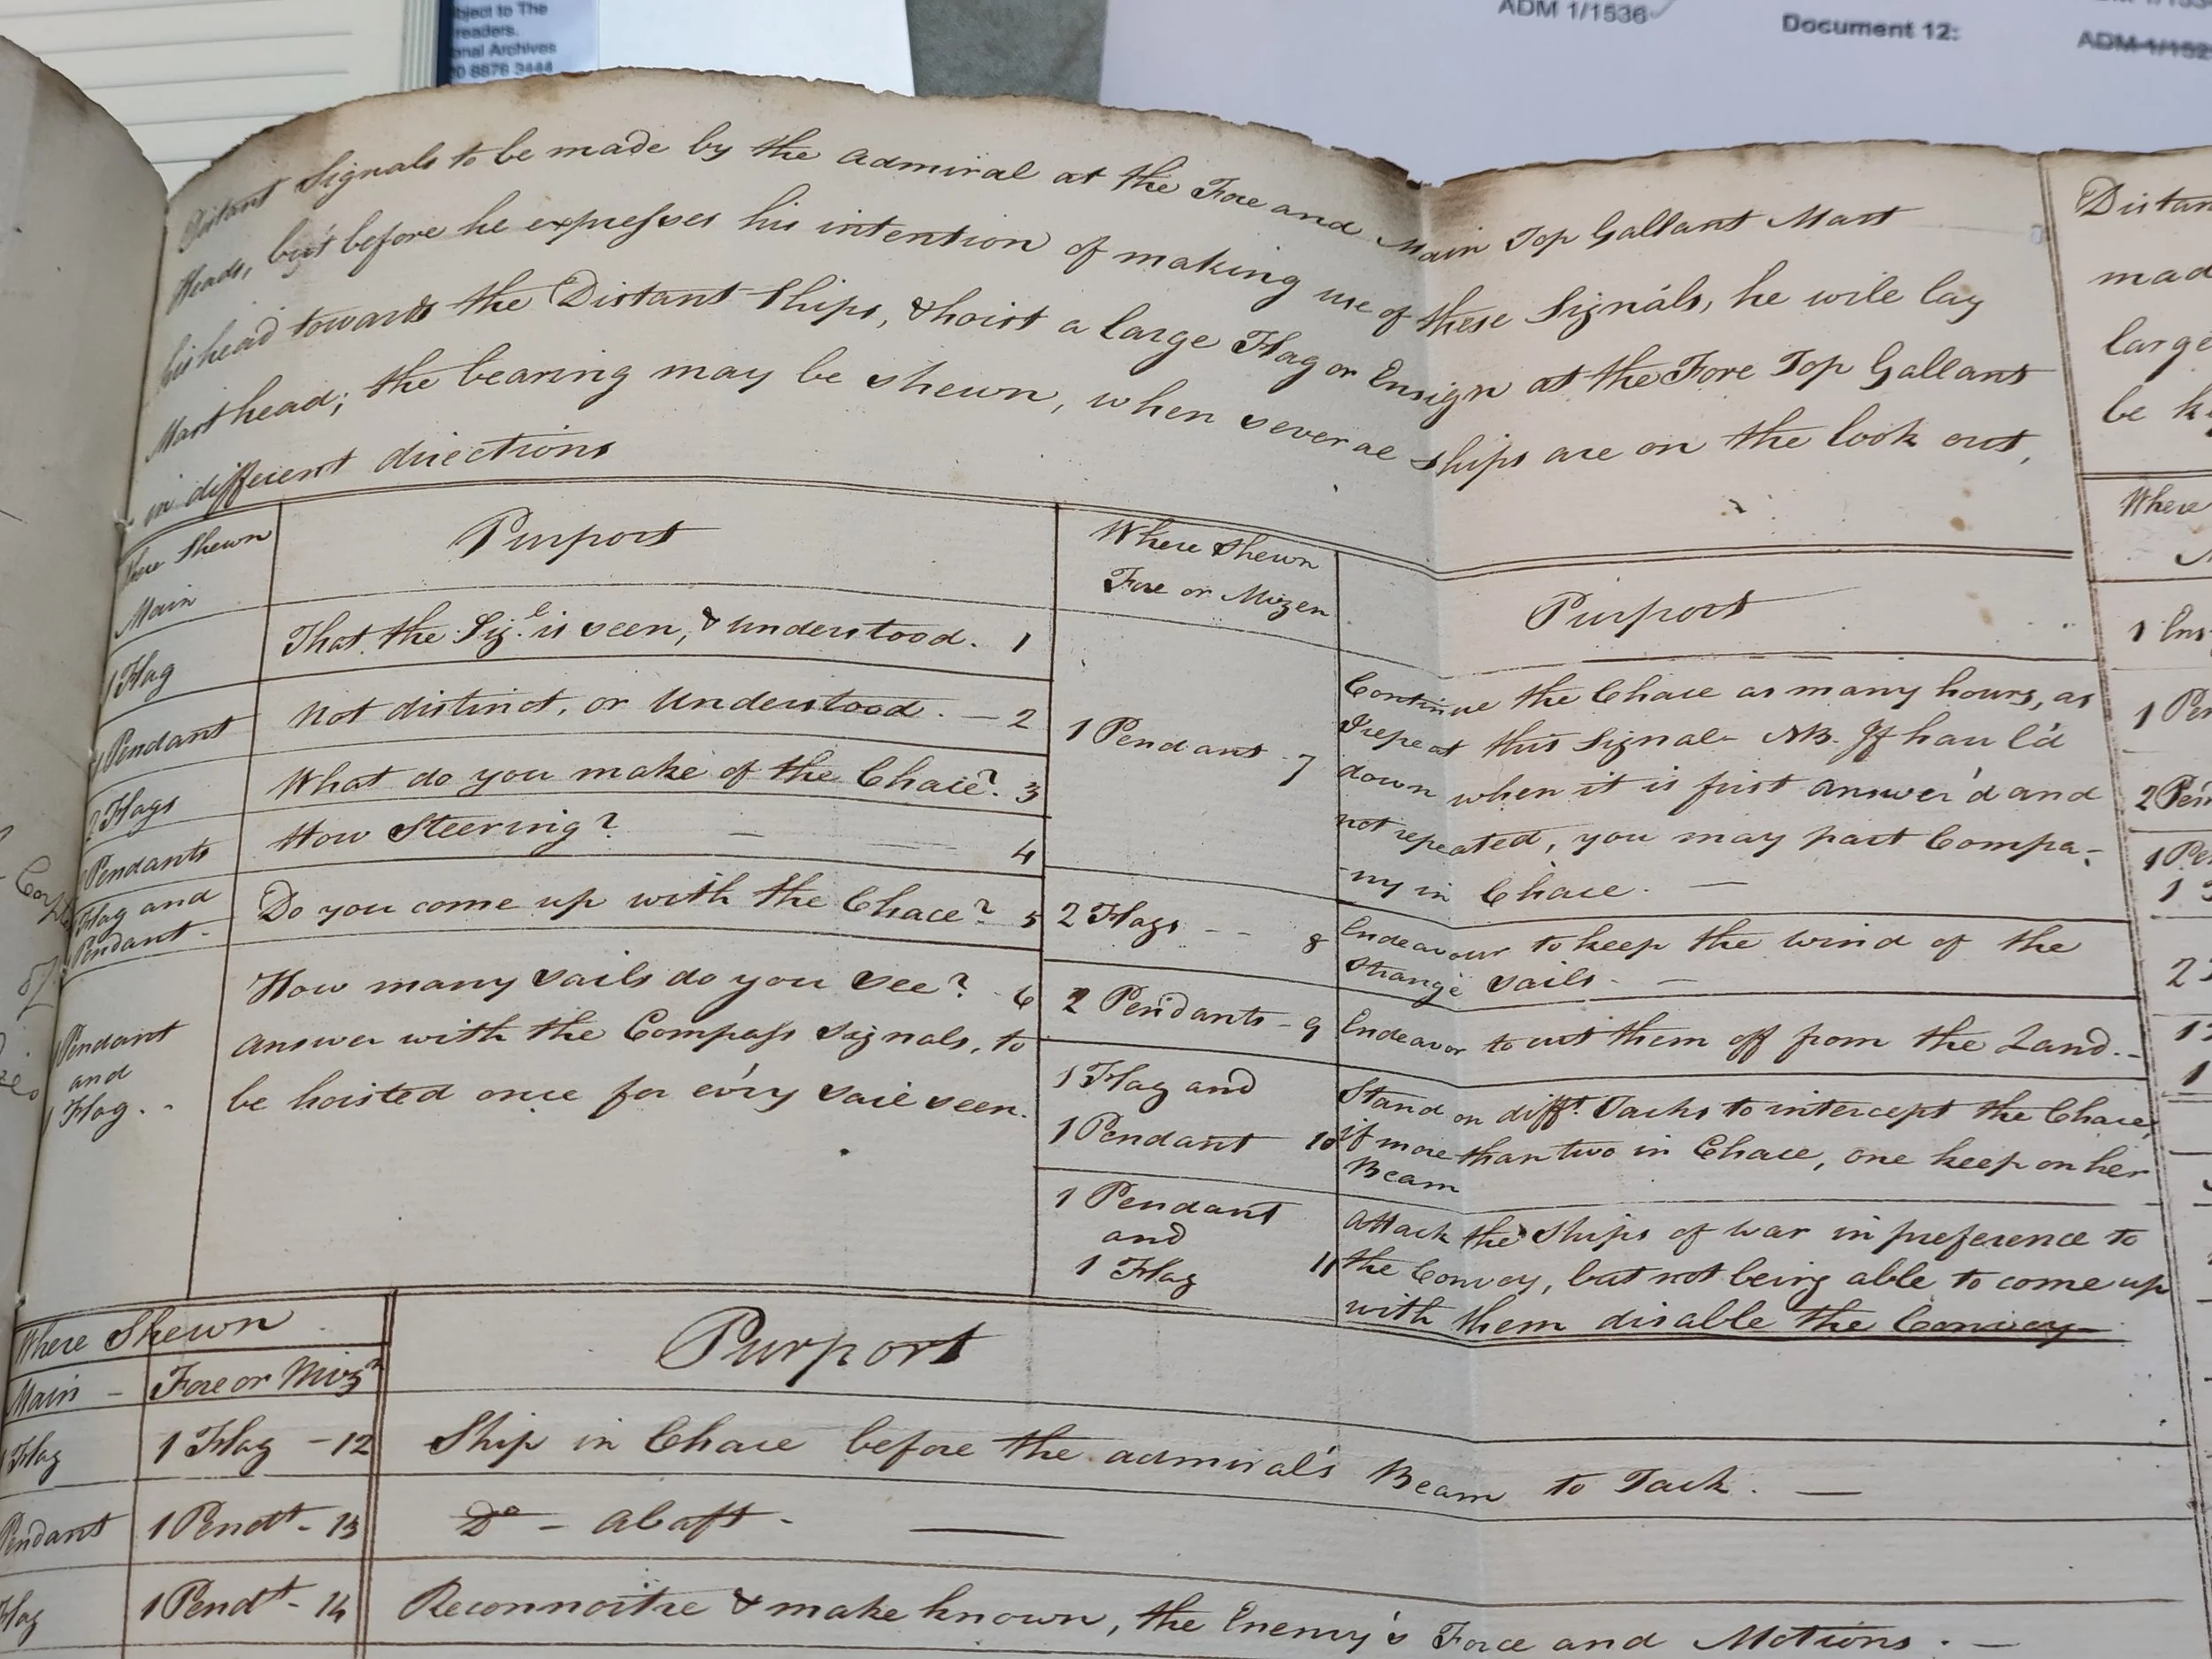 bject to The
readers.
onal Archives
0 8876 3444
ADM 1/1536
Document 12:
Distant Signals to be made by the Admiral at the Fore and Main Top Gallant Mast
Heads, but before he expresses his intention of making use of these Signals, he will lay
his head towards the Distant Ships, & hoist a large Flag or Ensign at the Fore Top Gallant
Mast head; the bearing may be shewn, when several Ships are on the look out,
in different directions
Where Shewn
Main
Purport
1 Flag
That the Sigl. is seen, & understood. 1
1 Pendant
Not distinct, or Understood. - 2
2 Flags
What do you make of the Chace? 3
Pendants
How Steering? - 4
Flag and
Pendant -
Do you come up with the Chace? 5
1 Pendant
and
1 Flag. -
How many sails do you see? - 6
answer with the Compass signals, to
be hoisted once for ev'ry sail seen.
Where Shewn
Fore or Mizen
Purport
1 Pendant - 7
Continue the Chace as many hours, as
I repeat this Signal - NB. If haul'd
down when it is first answer'd and
not repeated, you may part Compa-
-ny in Chace. -
2 Flags - - 8
Endeavour to keep the wind of the
strange sails. -
2 Pendants - 9
Endeavor to cut them off from the Land. -
1 Flag and
1 Pendant 10
Stand on difft. Tacks to intercept the Chace,
if more than two in Chace, one keep on her
Beam
1 Pendant
and
1 Flag 11
Attack the Ships of war in preference to
the Convoy, but not being able to come up
with them disable the Convoy
Where Shewn
Main - Fore or Mizn
Purport
1 Flag 1 Flag - 12 Ship in Chace before the admiral's Beam to Tack. -
Pendant 1 Pendt - 13 Do - Abaft - -
Flag 1 Pendt - 14 Reconnoitre & make known, the Enemy's Force and Motions. -
Distan
mad
large
be k
Where
1 Ens
1 Pen
2 Pen
1 Pe
1
2
1
1